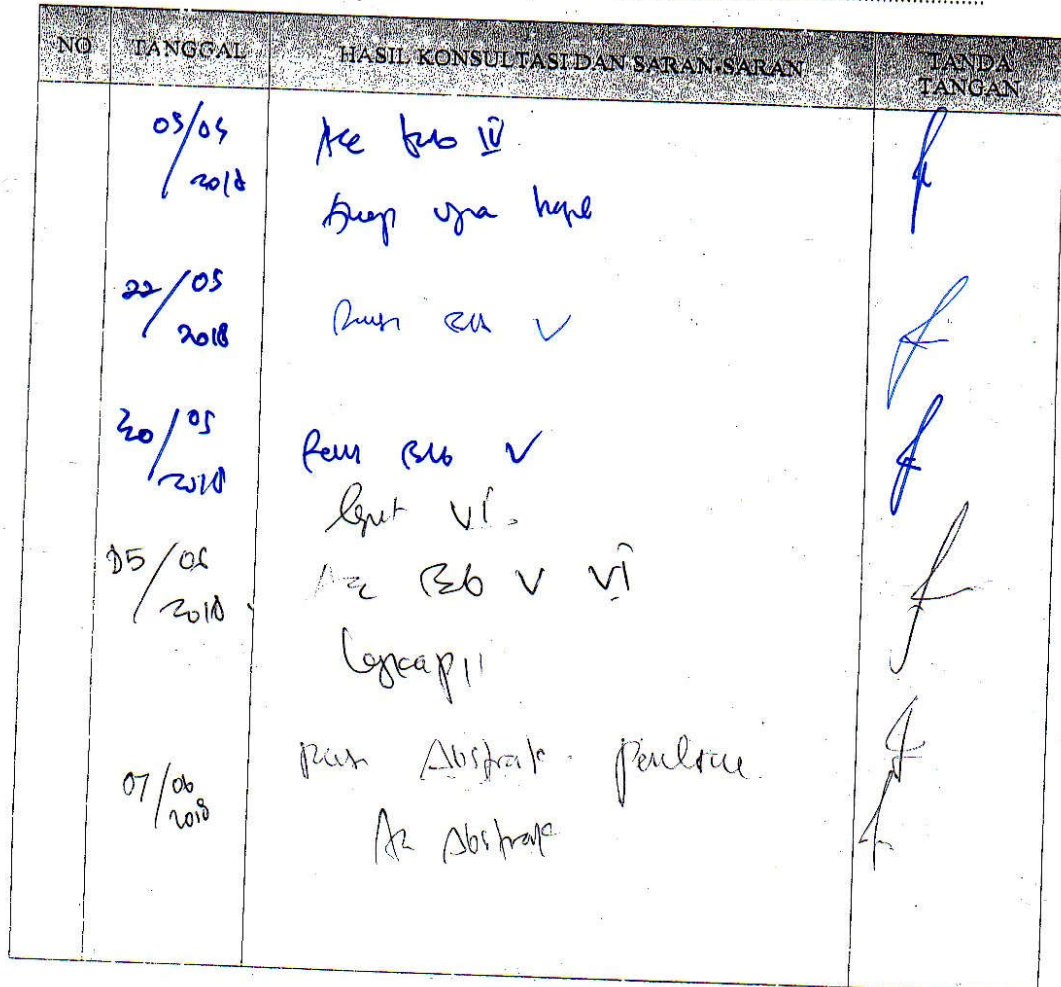 NO TANGGAL HASIL KONSULTASI DAN SARAN-SARAN TANDA TANGAN
05/05 2018 Acc bab IV
22/05 2018 Revisi Bab V
30/05 2018 Revisi Bab V
Lanjut VI.
05/06 2018 Acc Bab V VI
Lengkapi
07/06 2018 Revisi Abstrak Penulisan
Acc Abstrak